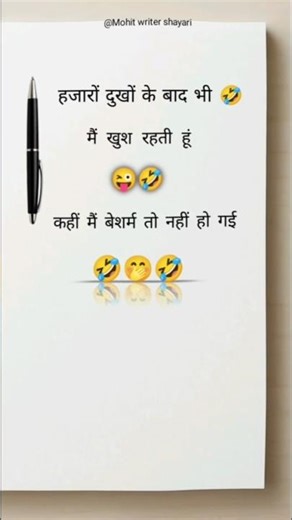 @Mohit writer shayari
हजारों दुखों के बाद भी 🤣
मैं खुश रहती हूं
😜🤣
कहीं मैं बेशर्म तो नहीं हो गई
🤣🤭🤣